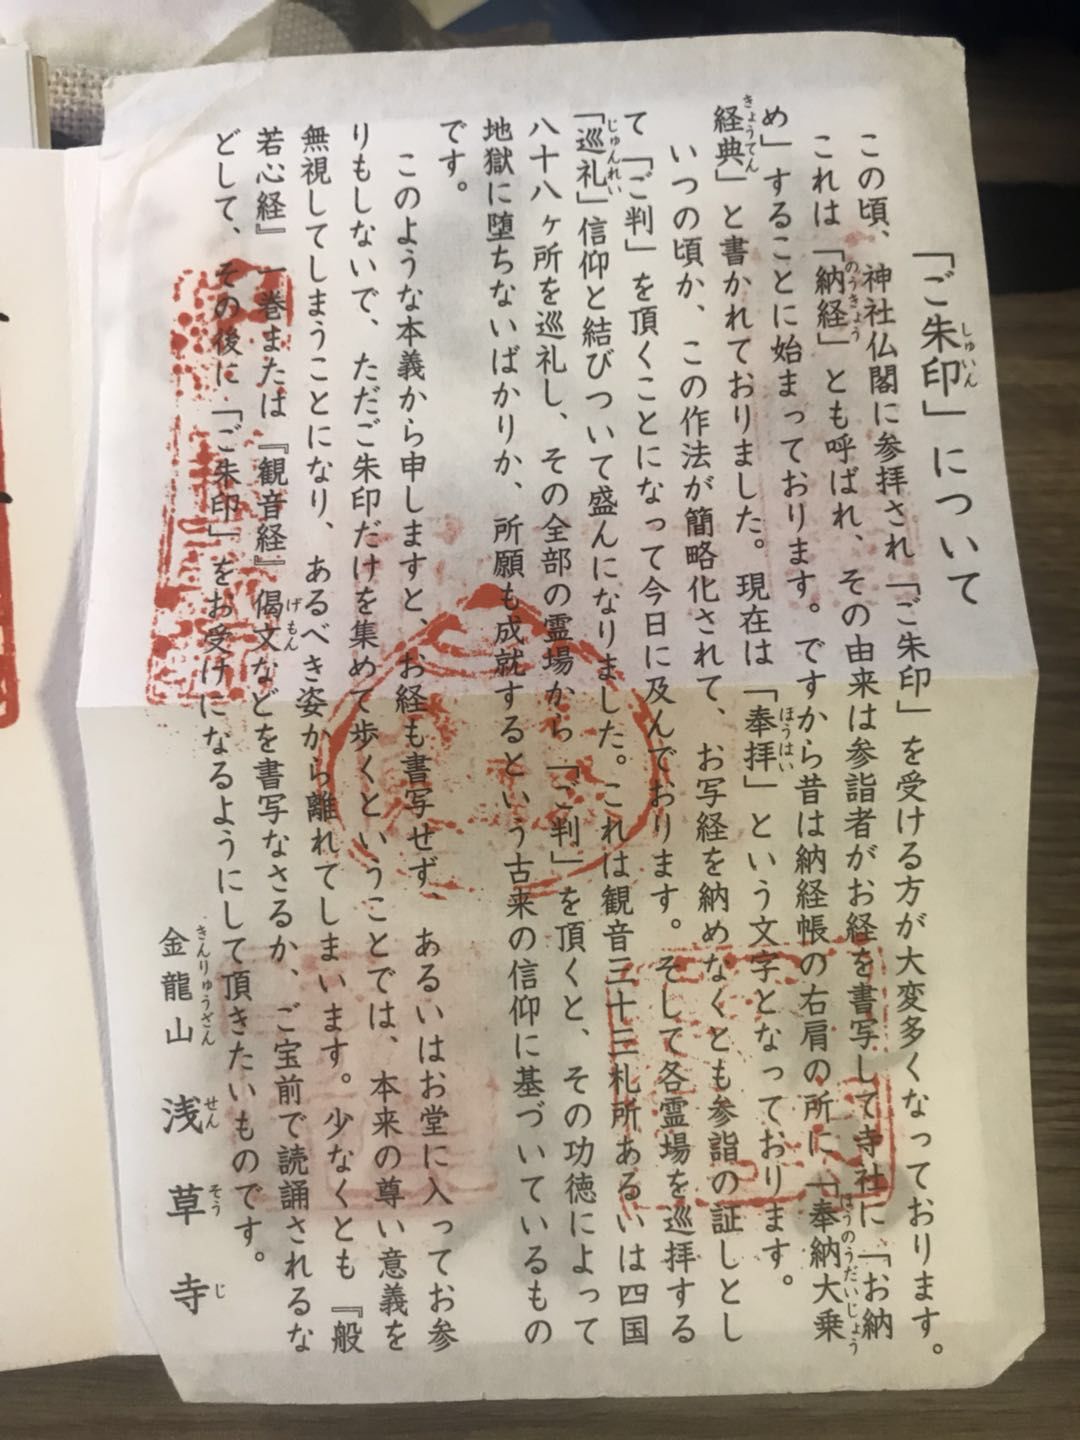 「ご朱印」について
この頃、神社仏閣に参拝され「ご朱印」を受ける方が大変多くなっております。
これは「納経」とも呼ばれ、その由来は参詣者がお経を書写して寺社に「お納
め」することに始まっております。ですから昔は納経帳の右肩の所に、「奉納大乗
経典」と書かれておりました。現在は「奉拝」という文字となっております。
いつの頃か、この作法が簡略化されて、お写経を納めなくとも参詣の証しとし
て「ご判」を頂くことになって今日に及んでおります。そして各霊場を巡拝する
「巡礼」信仰と結びついて盛んになりました。これは観音三十三札所あるいは四国
八十八ヶ所を巡礼し、その全部の霊場から「ご判」を頂くと、その功徳によって
地獄に堕ちないばかりか、所願も成就するという古来の信仰に基づいているもの
です。
このような本義から申しますと、お経も書写せず、あるいはお堂に入ってお参
りもしないで、ただご朱印だけを集めて歩くということでは、本来の尊い意義を
無視してしまうことになり、あるべき姿から離れてしまいます。少なくとも『般
若心経』一巻または『観音経』偈文などを書写なさるか、ご宝前で読誦されるな
どして、その後に「ご朱印」をお受けになるようにして頂きたいものです。
金龍山 浅草寺